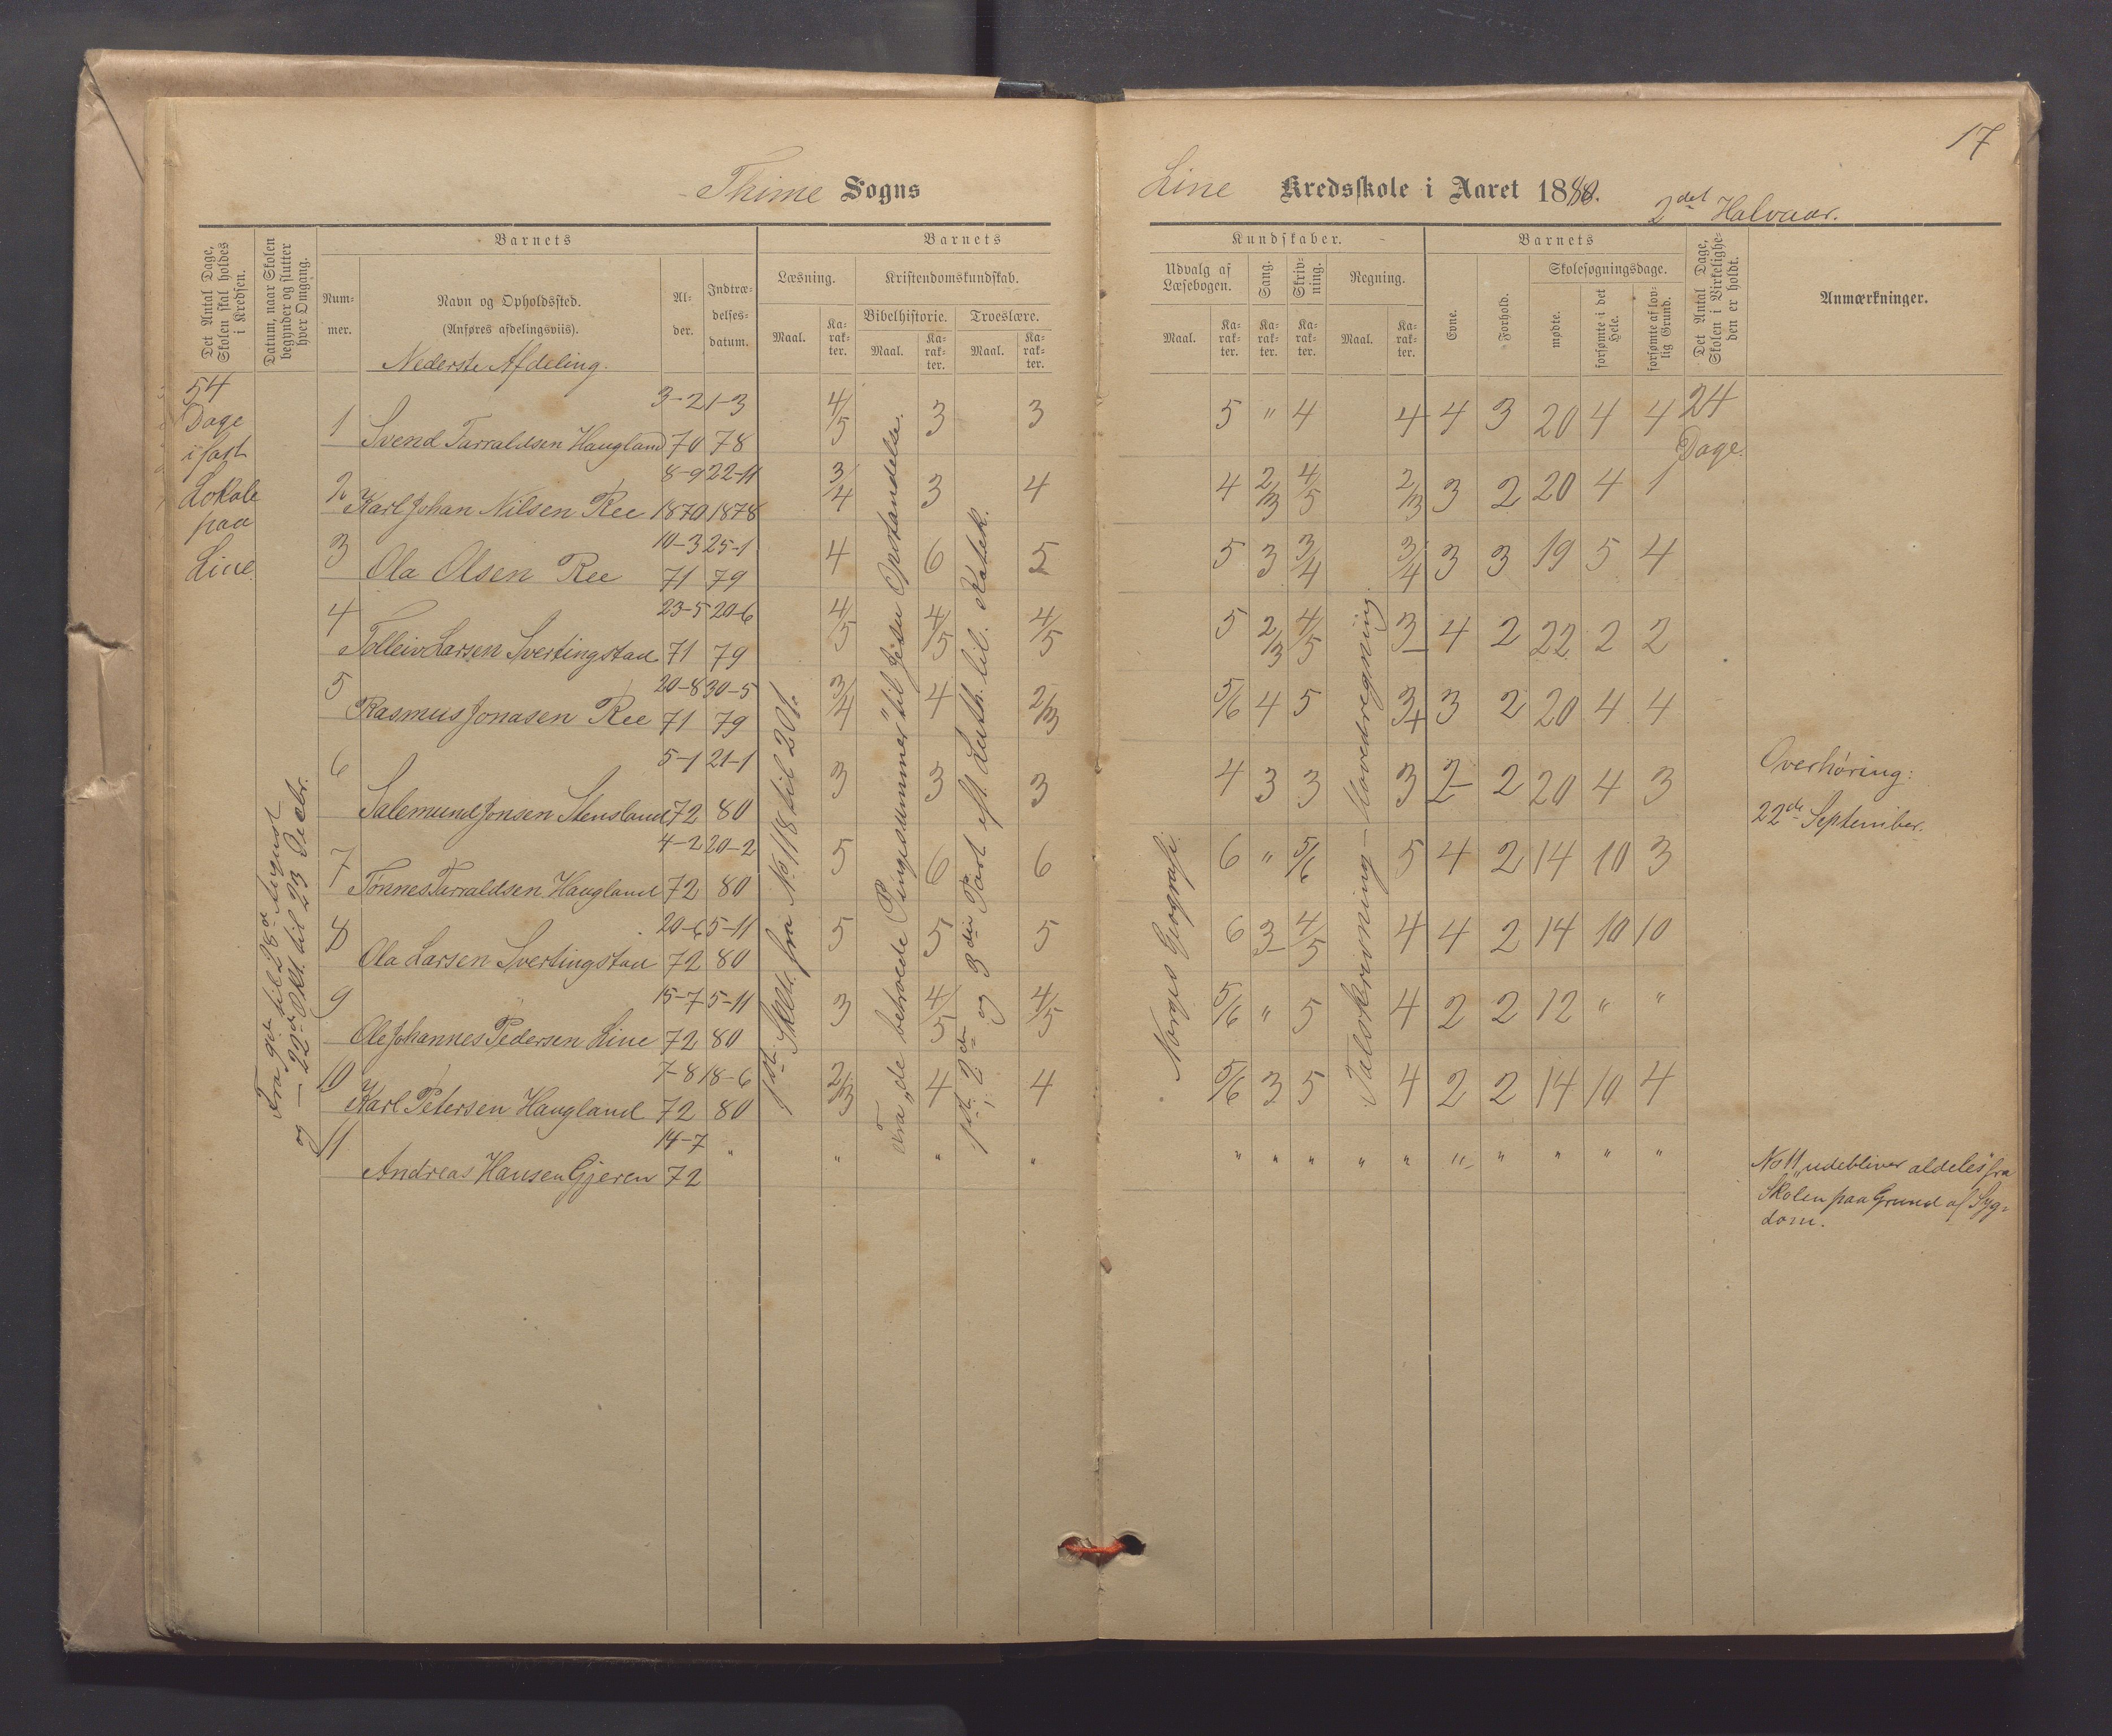 17
Thime Sogns
Line Kredsskole i Aaret 1880.
2det Halvaar.
Det Antal Dage, Skolen skal holdes i Kredsen.
Datum, naar Skolen begynder og slutter hver Omgang.
Barnets
Num-
mer.
Navn og Opholdssted.
(Anføres afdelingsviis).
Nederste Afdeling.
Al-
der.
Indtræ-
delses-
datum.
Barnets
Læsning.
Kristendomskundskab.
Bibelhistorie. Troeslære.
Maal. Ka-rak-ter. Maal. Ka-rak-ter. Maal. Ka-rak-ter.
Kundskaber.
Udvalg af Læsebogen. Sang. Skriv-ning. Regning.
Maal. Ka-rak-ter. Ka-rak-ter. Ka-rak-ter. Maal. Ka-rak-ter.
Barnets
Evne. Forhold.
Skolesøgningsdage.
mødte. forsømte i det Hele. forsømte af lov-lig Grund.
Det Antal Dage, Skolen i Virkelighe-den er holdt.
Anmærkninger.
54
Dage
i fast
Lokale
paa
Line.
Fra 9de til 28de August
og — 22de Okt. til 23 Decbr.
1ste Skltr. fra No 118 til 201.
Fra "de betroede Pund summer" til Jesu Opstandelse.
1ste, 2den og 3die Part eft. Luth. lil. Katek.
Norges Geografi.
Talskrivning – Hovedregning.
1 Svend Tarraldsen Haugland 3-2 70 21-3 78 4/5 3 3 5 " 4 4 4 3 20 4 4 24 Dage.
2 Karl Johan Nilsen Ree 8-9 1870 22-11 1878 3/4 3 4 4 2/3 4/5 2/3 3 2 20 4 1
3 Ola Olsen Ree 10-3 71 25-1 79 4 6 5 5 3 3/4 3/4 3 3 19 5 4
4 Tolleiv Larsen Svertingstad 23-5 71 20-6 79 4/5 4/5 4/5 5 2/3 4/5 3- 4 2 22 2 2
5 Rasmus Jonasen Ree 20-8 71 30-5 79 3/4 4 2/3 5/6 4 5 3+ 3 2 20 4 4
6 Salemund Jonsen Stensland 5-1 72 21-1 80 3 3 3 4 3 3 3 2- 2 20 4 3
7 Tønnes Tarraldsen Haugland 4-2 72 20-2 80 5 6 6 6 " 5/6 5 4 2 14 10 3
8 Ola Larsen Svertingstad 20-6 72 5-11 80 5 5 5 6 3- 4/5 4 4 2 14 10 10
9 Ole Johannes Pedersen Line 15-7 72 5-11 80 3 4/5 4/5 5/6 " 5 4 2 2 12 " "
10 Karl Petersen Haugland 7-8 72 18-6 80 2/3 4 4 5/6 3 5 4 2 2 14 10 4
11 Andreas Hansen Gjeren 14-7 72 " " " " " " " " " " " " " "
Overhøring:
22de September.
No 11 udebliver aldeles fra
Skolen paa Grund af Syg-
dom.